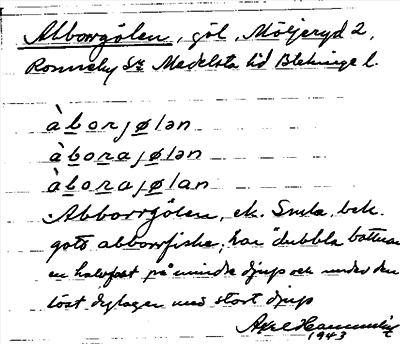 Abborrgölen, göl, Möljeryd 2,
Ronneby Sn Medelsta hd Blekinge l.
àborjølən
àborajølən
àborajølan
Abborrgölen, ek. Smla, bek.
gott abborrfiske, har dubbla bottnar
en halvfast på mindre djup och under den
löst dylager med stort djup
Axel
1943